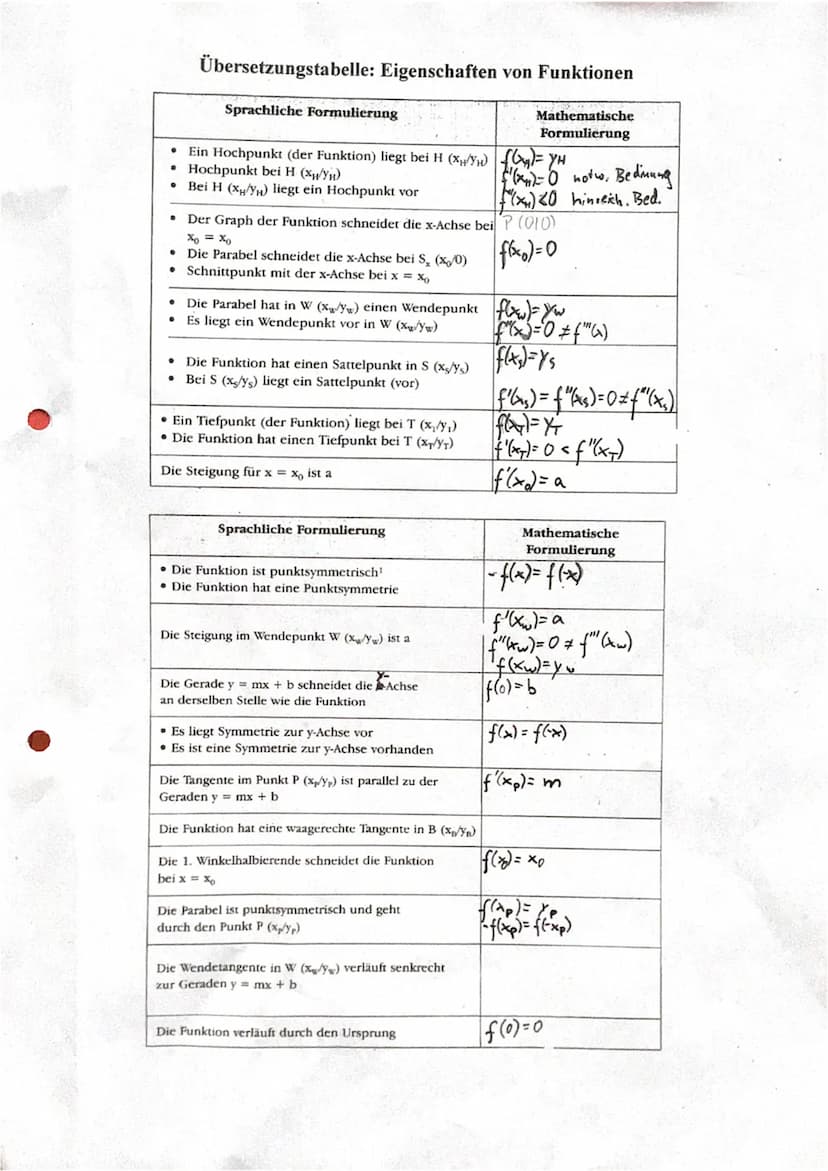 Übersetzungstabelle: Eigenschaften von Funktionen
Sprachliche Formulierung
Mathematische
Formulierung
• Ein Hochpunkt (der Funktion) liegt bei H (x_H/y_H)
• Hochpunkt bei H (x_H/y_H)
• Bei H (x_H/y_H) liegt ein Hochpunkt vor
f(x_H) = y_H
f'(x_H) = 0 notw. Bedinung
f''(x_H) < 0 hinreich. Bed.
• Der Graph der Funktion schneidet die x-Achse bei
x₀ = x₀
• Die Parabel schneidet die x-Achse bei Sₓ (x₀/0)
• Schnittpunkt mit der x-Achse bei x = x₀
P (0|0)
f(x₀) = 0
• Die Parabel hat in W (x_w/y_w) einen Wendepunkt
• Es liegt ein Wendepunkt vor in W (x_w/y_w)
f(x_w) = y_w
f''(x) = 0 ≠ f'''(x)
• Die Funktion hat einen Sattelpunkt in S (x_S/y_S)
• Bei S (x_S/y_S) liegt ein Sattelpunkt (vor)
f(x_S) = y_S
f'(x_S) = f''(x_S) = 0 ≠ f'''(x_S)
• Ein Tiefpunkt (der Funktion) liegt bei T (x_T/y_T)
• Die Funktion hat einen Tiefpunkt bei T (x_T/y_T)
f(x_T) = y_T
f'(x_T) = 0 < f''(x_T)
Die Steigung für x = x₀ ist a
f'(x₀) = a
Sprachliche Formulierung
Mathematische
Formulierung
• Die Funktion ist punktsymmetrisch¹
• Die Funktion hat eine Punktsymmetrie
-f(x) = f(-x)
Die Steigung im Wendepunkt W (x_w/y_w) ist a
f'(x_w) = a
f''(x_w) = 0 ≠ f'''(x_w)
f(x_w) = y_w
Die Gerade y = mx + b schneidet die y-Achse
an derselben Stelle wie die Funktion
f(0) = b
• Es liegt Symmetrie zur y-Achse vor
• Es ist eine Symmetrie zur y-Achse vorhanden
f(x) = f(-x)
Die Tangente im Punkt P (x_P/y_P) ist parallel zu der
Geraden y = mx + b
f'(x_p) = m
Die Funktion hat eine waagerechte Tangente in B (x_B/y_B)
Die 1. Winkelhalbierende schneidet die Funktion
bei x = x₀
f(x₀) = x₀
Die Parabel ist punktsymmetrisch und geht
durch den Punkt P (x_P/y_P)
f(x_p) = y_p
-f(x_p) = f(-x_p)
Die Wendetangente in W (x_w/y_w) verläuft senkrecht
zur Geraden y = mx + b
Die Funktion verläuft durch den Ursprung
f(0) = 0